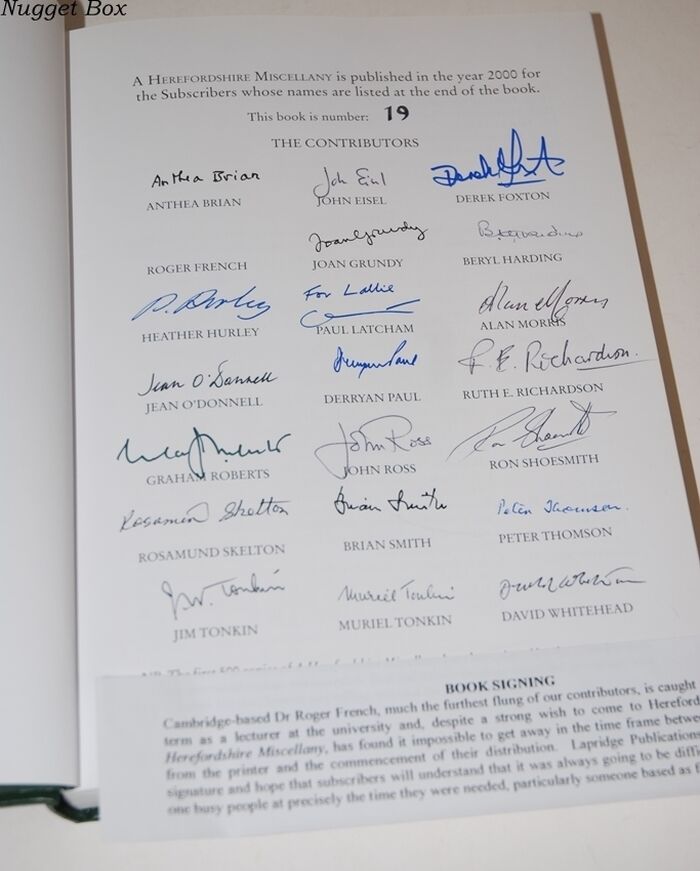 Nugget Box
A HEREFORDSHIRE MISCELLANY is published in the year 2000 for
the Subscribers whose names are listed at the end of the book.
This book is number: 19
THE CONTRIBUTORS
Anthea Brian
ANTHEA BRIAN JOHN EISEL DEREK FOXTON
Joan Grundy
ROGER FRENCH JOAN GRUNDY BERYL HARDING
For Lallie
HEATHER HURLEY PAUL LATCHAM ALAN MORRIS
Jean O'Donnell R. E. Richardson.
JEAN O'DONNELL DERRYAN PAUL RUTH E. RICHARDSON
John Ross
GRAHAM ROBERTS JOHN ROSS RON SHOESMITH
Rosamund Skelton Brian Smith Peter Thomson.
ROSAMUND SKELTON BRIAN SMITH PETER THOMSON
J.W. Tonkin Muriel Tonkin David Whitehead
JIM TONKIN MURIEL TONKIN DAVID WHITEHEAD
BOOK SIGNING
Cambridge-based Dr Roger French, much the furthest flung of our contributors, is caught
term as a lecturer at the university and, despite a strong wish to come to Hereford
Herefordshire Miscellany, has found it impossible to get away in the time frame betwe
from the printer and the commencement of their distribution. Lapridge Publications
signature and hope that subscribers will understand that it was always going to be diffi
one busy people at precisely the time they were needed, particularly someone based as f